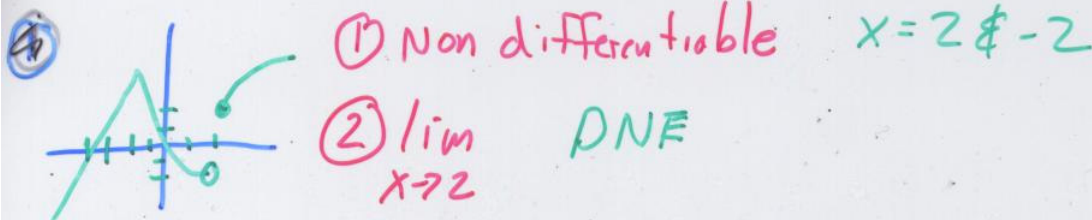 ① Non differentiable x = 2 & -2
② lim DNE
x→2